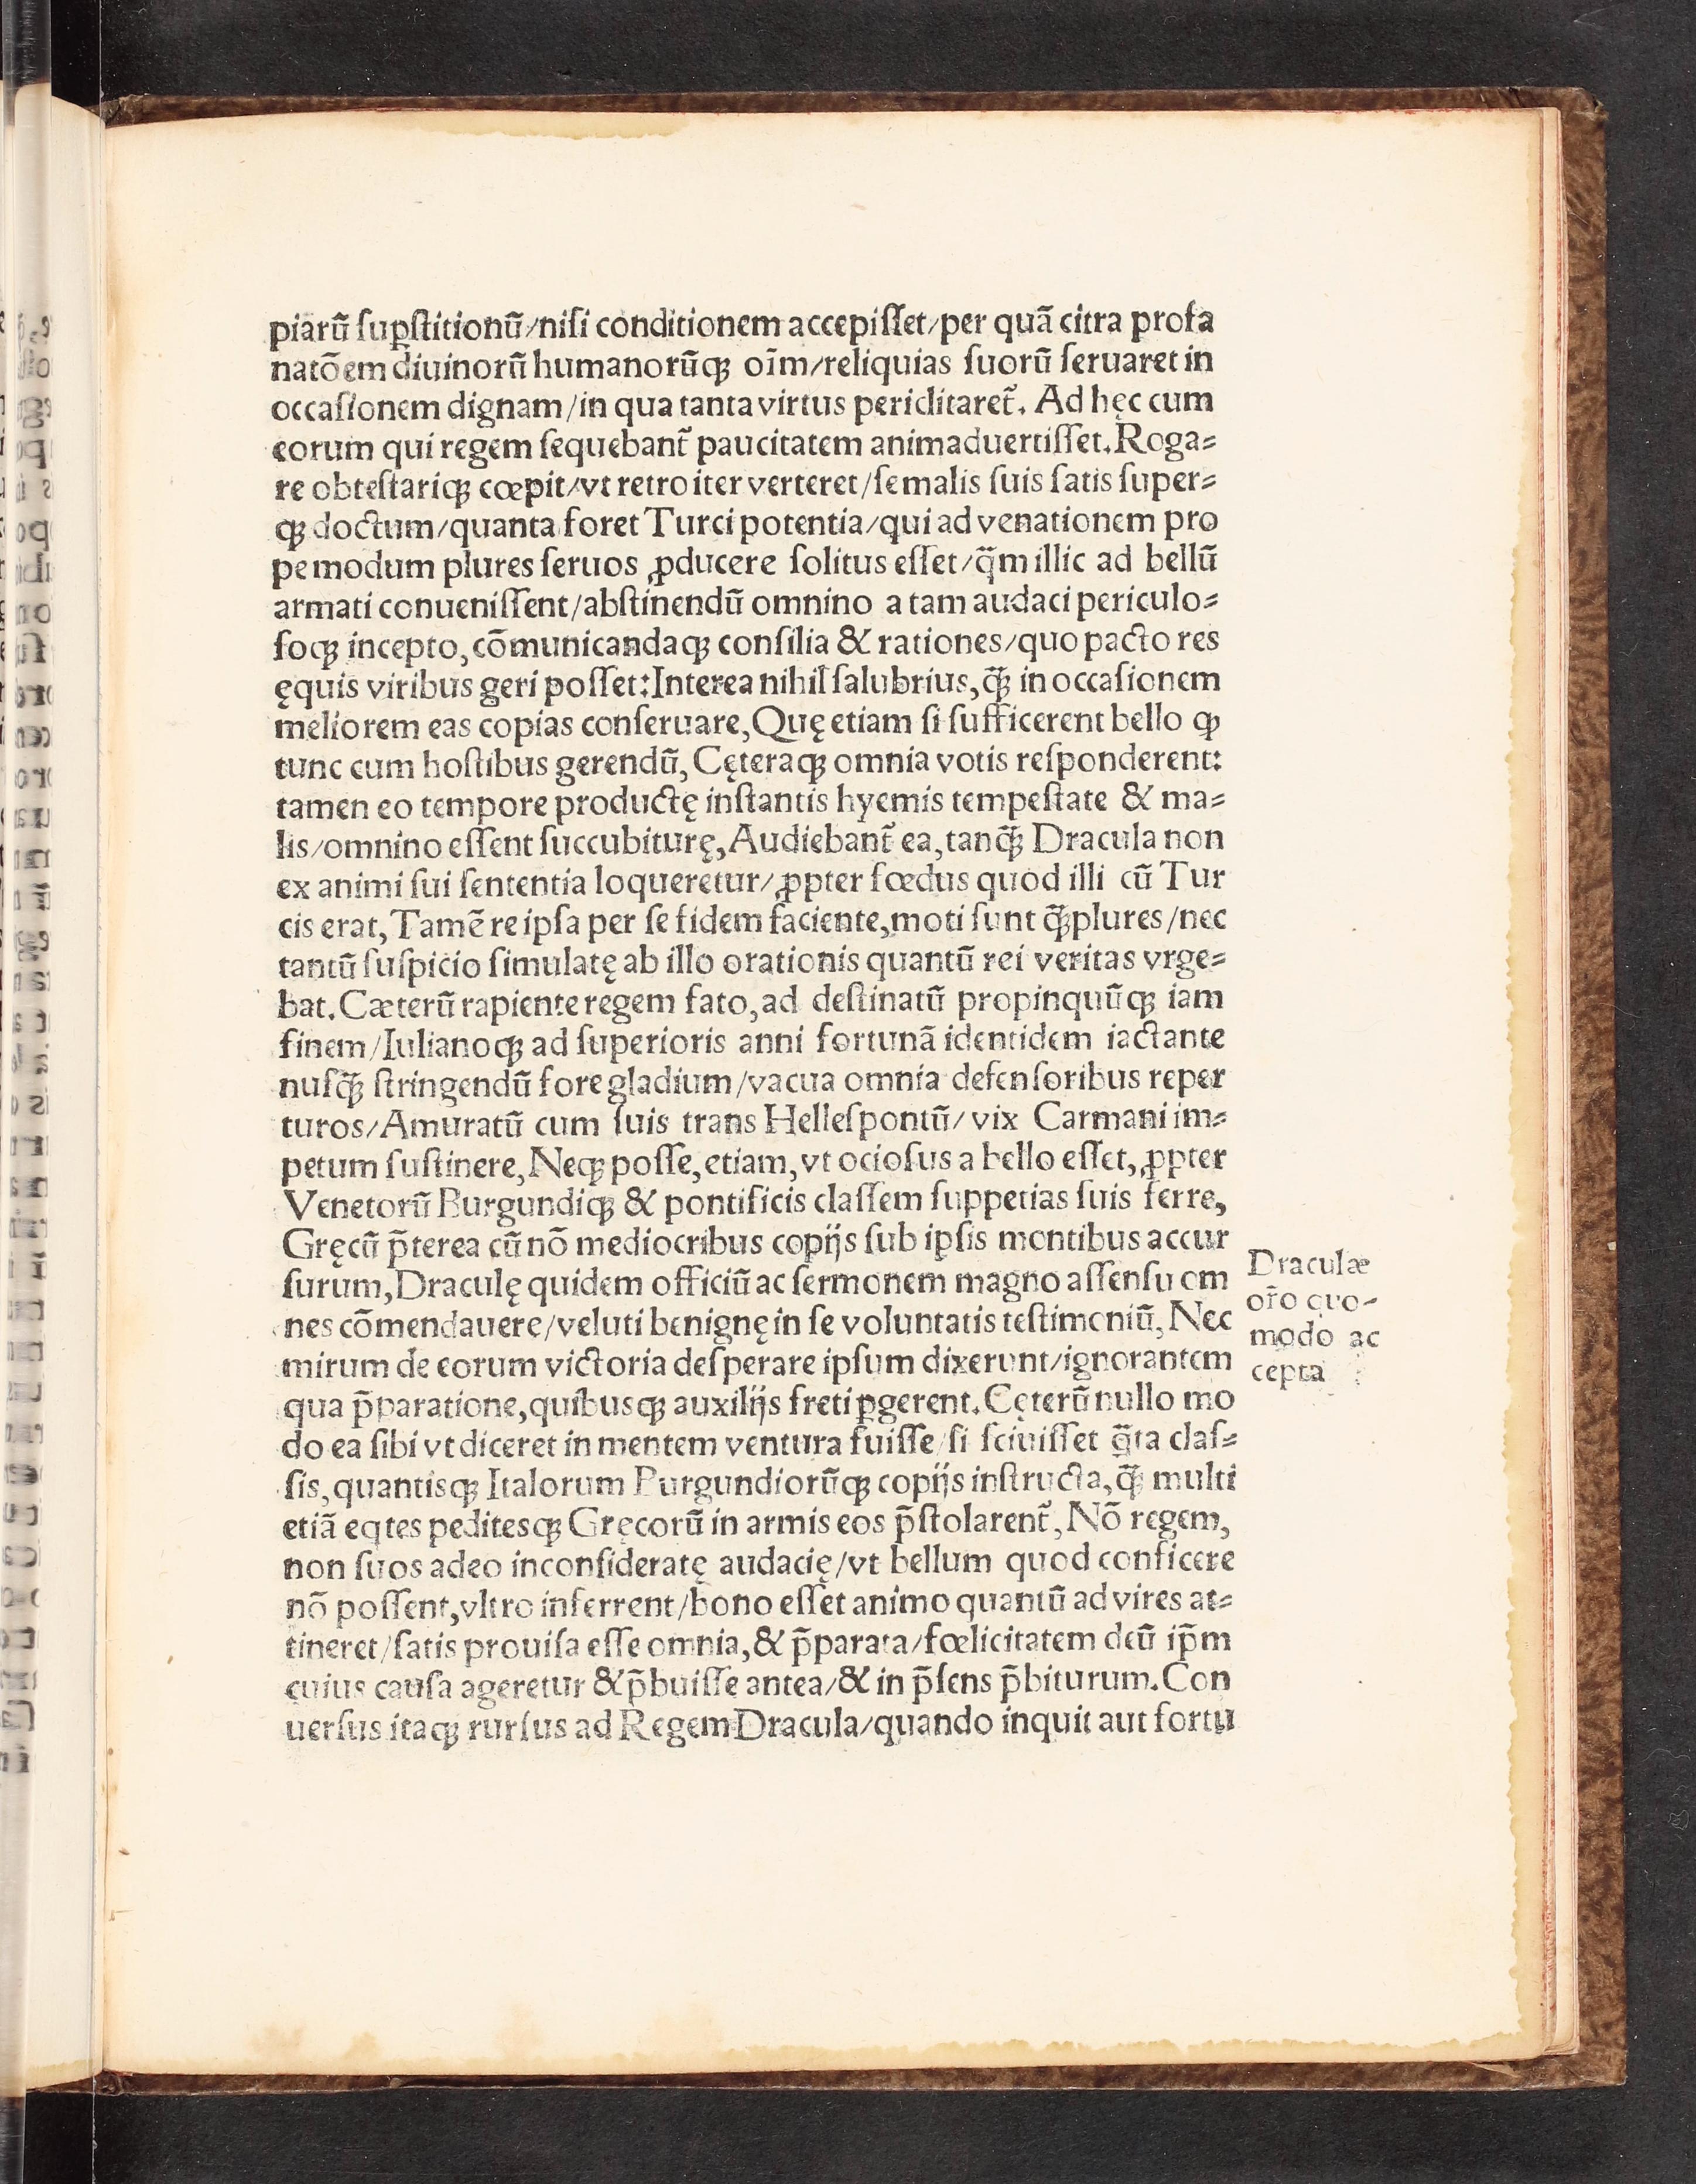 piarū ſuꝑſtitionū/niſi conditionem accepiſſet/per quā citra profa
natōem diuinorū humanorūqꝫ oīm/reliquias ſuorū ſeruaret in
occaſionem dignam/in qua tanta virtus periclitaret̄. Ad hęc cum
eorum qui regem ſequebant̄ paucitatem animaduertiſſet. Roga⸗
re obteſtariqꝫ cœpit/vt retro iter verteret/ſe malis ſuis ſatis ſuper⸗
qꝫ doctum/quanta foret Turci potentia/qui ad venationem pro
pemodum plures ſeruos ꝓducere ſolitus eſſet/q̄m illic ad bellū
armati conueniſſent/abſtinendū omnino a tam audaci periculo⸗
ſoqꝫ incepto, cōmunicandaqꝫ conſilia & rationes/quo pacto res
ęquis viribus geri poſſet: Interea nihil ſalubrius, qꝫ̄ in occaſionem
meliorem eas copias conſeruare, Quę etiam ſi ſufficerent bello qꝫ
tunc cum hoſtibus gerendū, Cęteraqꝫ omnia votis reſponderent:
tamen eo tempore productę inſtantis hyemis tempeſtate & ma⸗
lis/omnino eſſent ſuccubiturę, Audiebant̄ ea, tanqꝫ̄ Dracula non
ex animi ſui ſententia loqueretur/ꝓpter fœdus quod illi cū Tur
cis erat, Tamē re ipſa per ſe fidem faciente, moti ſunt qꝫ̄plures/nec
tantū ſuſpicio ſimulatę ab illo orationis quantū rei veritas vrge⸗
bat. Cæterū rapiente regem fato, ad deſtinatū propinquūqꝫ iam
finem/Iulianoqꝫ ad ſuperioris anni fortunā identidem iactante
nuſqꝫ̄ ſtringendū fore gladium/vacua omnia defenſoribus reper
turos/Amuratū cum ſuis trans Helleſpontū/vix Carmani im⸗
petum ſuſtinere, Neqꝫ poſſe, etiam, vt ocioſus a bello eſſet, ꝓpter
Venetorū Burgundiqꝫ & pontificis claſſem ſuppetias ſuis ferre,
Gręcū p̄terea cū nō mediocribus copijs ſub ipſis montibus accur
ſurum, Draculę quidem officiū ac ſermonem magno aſſenſu om
nes cōmendauere/veluti benignę in ſe voluntatis teſtimoniū, Nec
mirum de eorum victoria deſperare ipſum dixerunt/ignorantem
qua p̄paratione, quibusqꝫ auxilijs freti ꝑgerent. Cęterū nullo mo
do ea ſibi vt diceret in mentem ventura fuiſſe/ſi ſciuiſſet q̄ta claſ⸗
ſis, quantisqꝫ Italorum Burgundiorūqꝫ copijs inſtructa, qꝫ̄ multi
etiā eqtes peditesqꝫ Gręcorū in armis eos p̄ſtolarent̄, Nō regem,
non ſuos adeo inconſideratę audacię/vt bellum quod conficere
nō poſſent, vltro inferrent/bono eſſet animo quantū ad vires at⸗
tineret/ſatis prouiſa eſſe omnia, & p̄parata/fœlicitatem deū ip̄m
cuius cauſa ageretur & p̄buiſſe antea/& in p̄ſens p̄biturum. Con
uerſus itaqꝫ rurſus ad Regem Dracula/quando inquit aut fortu
Draculæ
or̄o quo-
modo ac
cepta